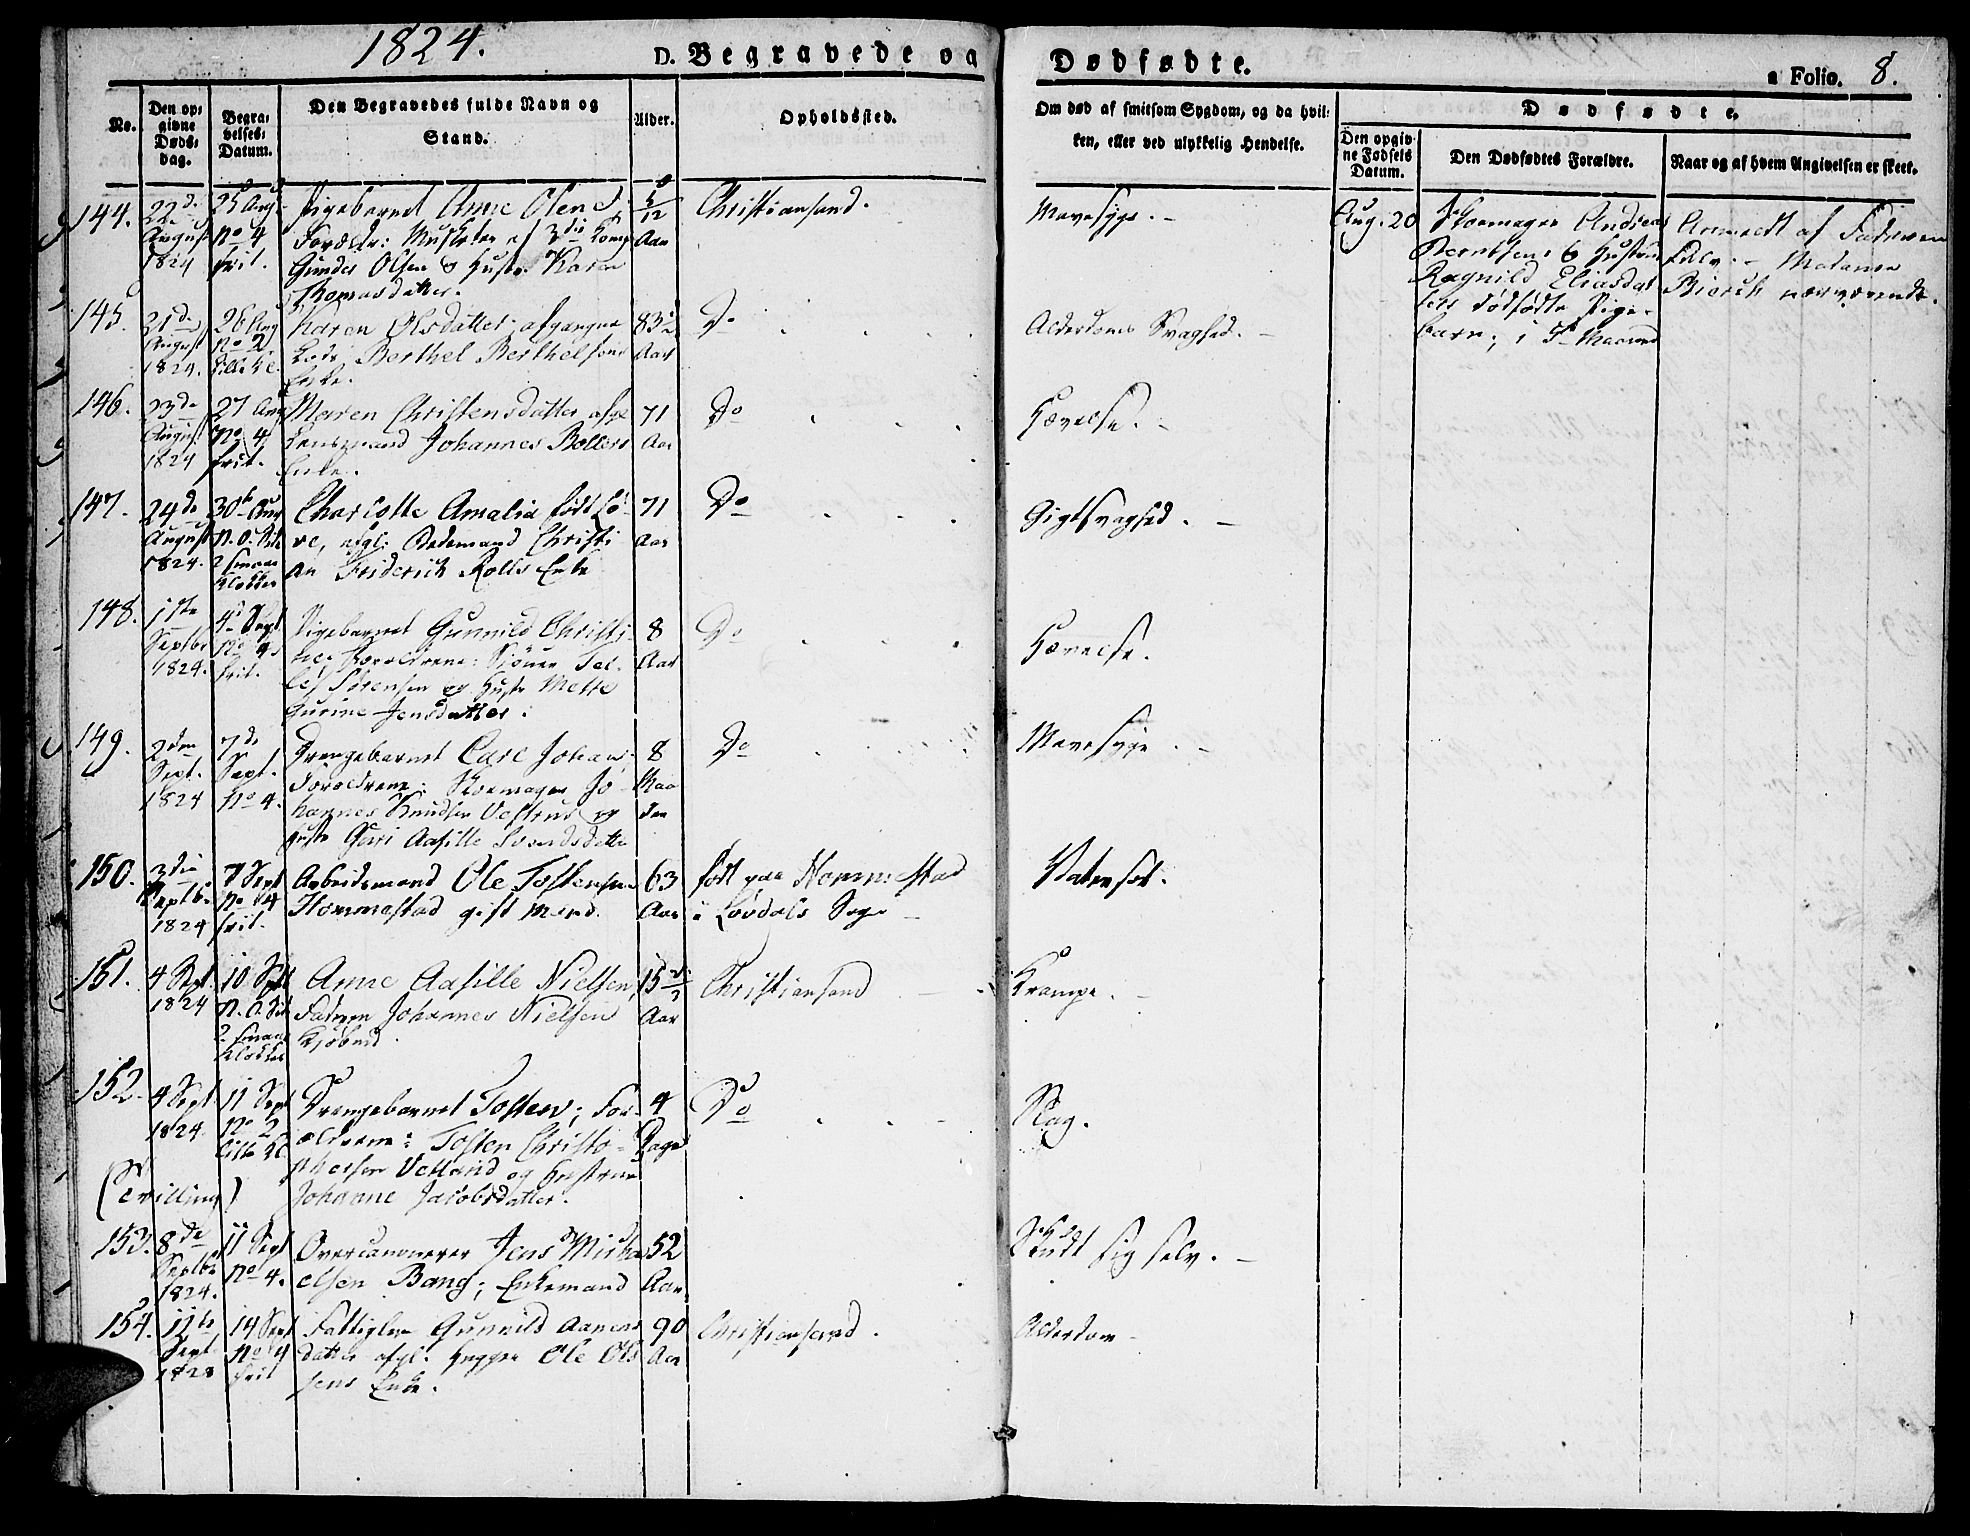 1824.
D. Begravede og Dødfødte. a Folio. 8.
No.
Den op-
givne
Døds-
dag.
Begra-
velses-
Datum.
Den Begravedes fulde Navn og
Stand.
Alder.
Opholdssted.
Om død af smitsom Sygdom, og da hvil-
ken, eller ved ulykkelig Hendelse.
Dødfødte.
Den opgiv-
ne Fødsels
Datum.
Den Dødfødtes Forældre.
Naar og af hvem Angivelsen er skeet.
144.
22de
August
1824
25 Aug
No 4
frit.
Pigebarnet Anne Olene
Forældr: Musketer af 3die Komp
Gunder Olsen og Hustr. Karen
Thomasdatter.
Aar
Christiansand.
Mavesyge.
Aug. 20
Skomager Andreas
Berntsens & Hustrue
Ragnild Eliasdat
ters dødfødte Pige-
barn; i Maaned
Anmeldt af Faderen
selv. - Madame
Biorck nærværende.
145.
21de
August
1824.
26 Aug
No 2
Karen Olsdatter; afgangne
Berthel Berthelsens
Enke.
83½
Aar
Do
Alderdoms Svaghed.
146.
23de
August
1824
27 Aug
No 4
frit.
Maren Christensdatter afgl
Lensmand Johannes Bollers
Enke.
71
Aar
Do
Hævelse.
147.
24de
August
1824.
30te Aug
2 smaae
Klokker
Charlotte Amalia født Lö-
ve, afgl. Christi
an Friderich Rolls Enke
71
Aar
Do
Gigtsvaghed.
148.
1ste
Septbr
1824.
4de Sept
No 4
frit.
Pigebarnet Gunnild Christi-
ne. Forældrene: Tel-
lef Sørensen og Hustr Mette
Gurine Jensdatter.
8
Aar
Do
Hævelse.
149.
2den
Sept.
1824
7de
Sept.
No 4.
Drengebarnet Carl Johan;
Forældrene: Skomager Jo-
hannes Knudsen Vestrus og
Hustr Guri Aasille Svendsdatter
8
Maa
der
Do
Mavesyge.
150.
3die
Septbr
1824
7 Sept
No 4
frit.
Arbeidsmand Ole Tostensen
Hommestad gift Mand.
63
Aar
født paa Hommestad
i Løvdals Sogn
Vatersot.
151.
4 Sept.
1824
10 Sept
2 smaae
Klokker
Anne Aasille Nielsen,
Faderen Johannes Nielsen
15½
Aar
Christiansand
Krampe.
152.
4 Sept
1824.
11 Sept
No 2
(Tvilling)
Drengebarnet Tosten; For-
ældrene: Tosten Christo-
phersen Vetland og Hustrue
Johanne Jacobsdatter.
4
Dage
Do
Slag.
153.
8de
Septbr
1824.
11 Sept
No 4.
Overcanonerer Jens Micha
elsen Bang; Enkemand
52
Aar
Skudt sig selv.
154.
11te
Sept
14 Sept
No 4
frit
Fattiglem Gunnild Aanens
datter afgl. Ole Ols
sens Enke.
90
Aar
Christiansand.
Alderdom